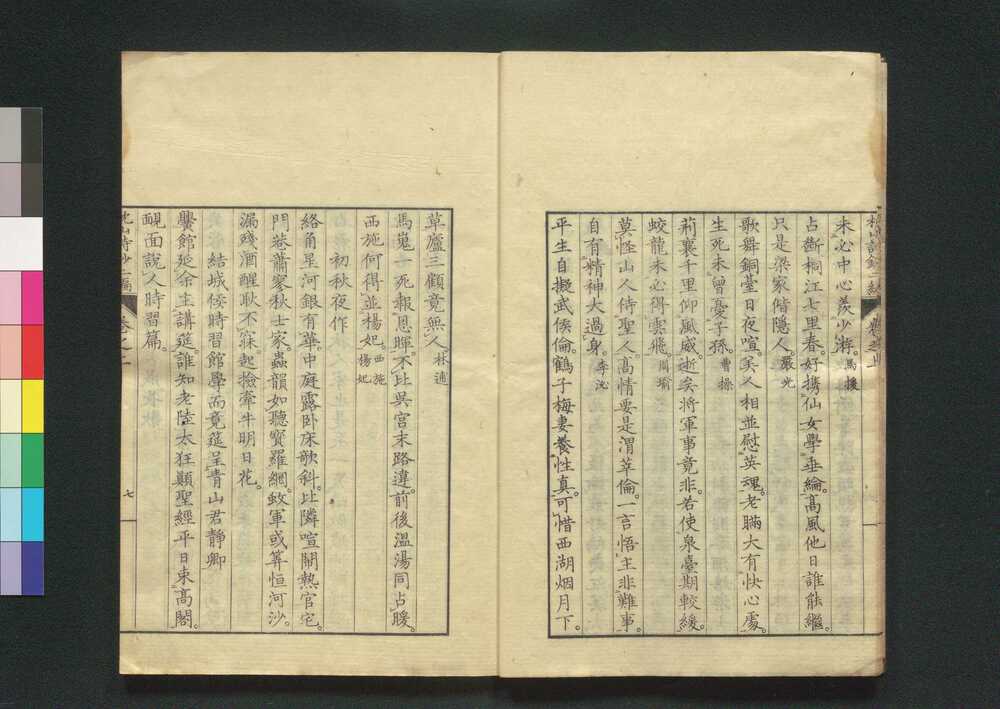 未必中心羨少游。馬援
占斷桐江七里春。好携仙女學垂綸。高風他日誰能繼。
只是梁家偕隱人。嚴光
歌舞銅臺日夜喧。美人相並慰英魂。老瞞大有快心處。
生死未曾憂子孫。曹操
荊襄千里仰風威。逝矣將軍事竟非。若使泉臺期較緩。
蛟龍未必得雲飛。周瑜
莫怪山人侍聖人。高情要是渭莘倫。一言悟主非難事。
自有精神大過身。李泌
平生自擬武侯倫。鶴子梅妻養性真。可惜西湖烟月下。
草廬三顧竟無人。林逋
馬嵬一死報恩暉。不比吳宮末路違。前後溫湯同占暖。
西施何得並楊妃。西施 楊妃
初秋夜作
絡角星河銀有華。中庭露臥床欹斜。比隣喧鬧熱官宅。
門巷蕭寥秋士家。蟲韻如聽寶羅網。蚊軍或算恒河沙。
漏殘酒醒耿不寐。起撿牽牛明日花。
結城侯時習館學而竟筵呈青山君靜卿
黌館延余主講筵。誰知老陸太狂顛。聖經平日束高閣。
靦面說人時習篇。
卷之二
七